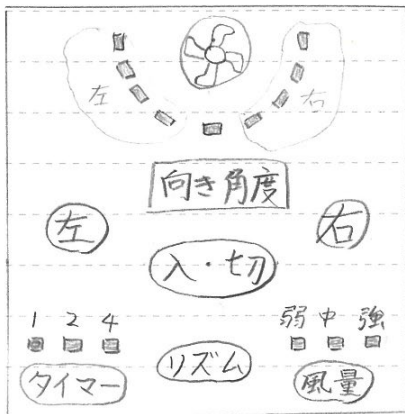 左 右
向き角度
左 右
入・切
1 2 4 弱 中 強
タイマー リズム 風量